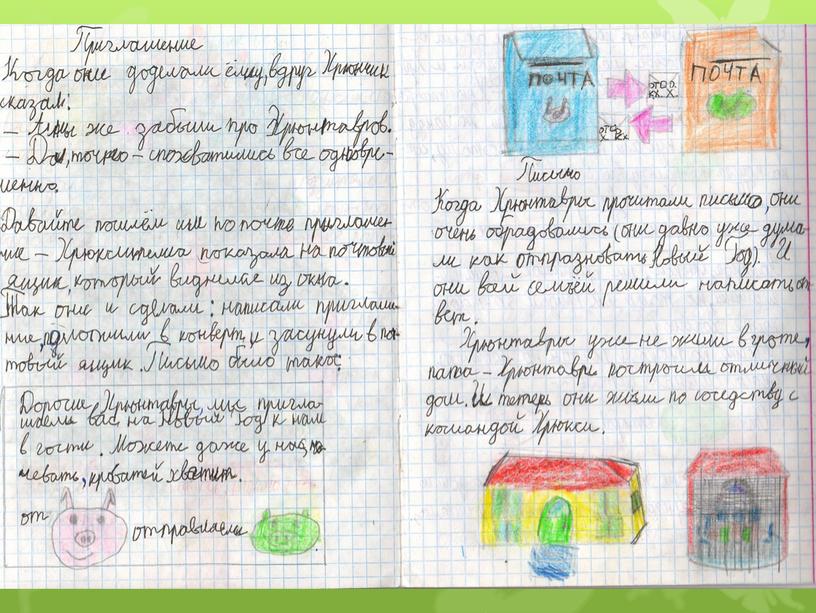 Приглашение
Когда они доделали ёлку, вдруг Хрюнчик
сказал:
– А мы же забыли про Хрюнтавров.
– Да, точно – спохватились все одновре-
менно.
Давайте пошлём им по почте приглаше-
ние – Хрюклитема показала на почтовый
ящик, который виднелся из окна.
Так они и сделали: написали приглаше-
ние, положили в конверт, и засунули в поч-
товый ящик. Письмо было такое:
Дорогие Хрюнтавры, мы пригла-
шаем вас на Новый Год к нам
в гости. Можете даже у нас но-
чевать, кроватей хватит.
от
отправляем
ПОЧТА
ПОЧТА
Письмо
Когда Хрюнтавры прочитали письмо, они
очень обрадовались (они давно уже дума-
ли как отпраздновать Новый Год). И
они всей семьёй решили написать от-
вет.
Хрюнтавры уже не жили в гроте,
папа – Хрюнтавр построил отличный
дом. И теперь они жили по соседству с
командой Хрюкси.